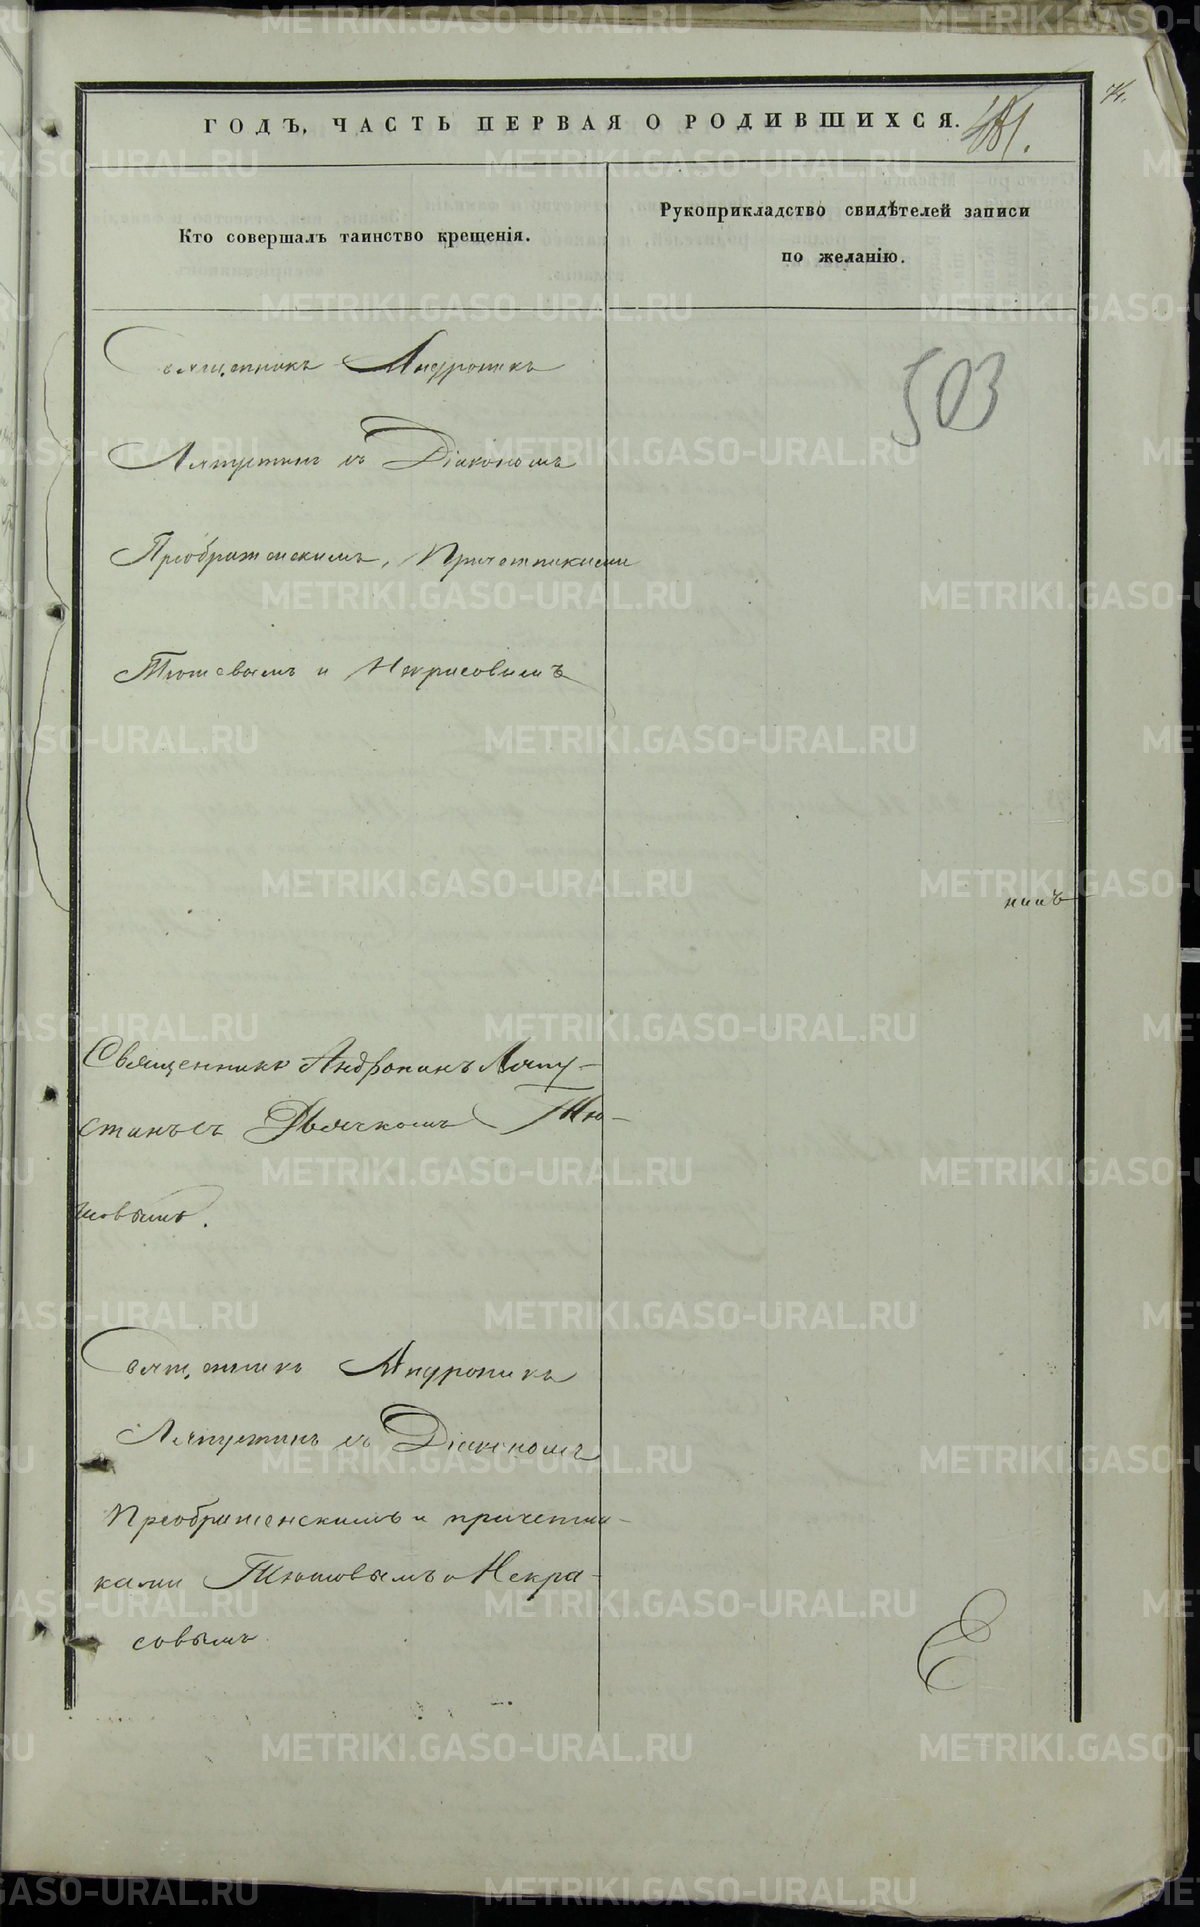 ГОДЪ, ЧАСТЬ ПЕРВАЯ О РОДИВШИХСЯ.
Кто совершалъ таинство крещенія.
Рукоприкладство свидѣтелей записи
по желанію.
Священникъ Андроникъ
503
Ляпустинъ съ Діакономъ
Преображенскимъ, Причетниками
Тюшевымъ и Некрасовымъ
нинъ
Священникъ Андроникъ Ляпу-
стинъ съ Дьячкомъ Тю-
шовымъ.
Священникъ Андроникъ
Ляпустинъ съ Діакономъ
Преображенскимъ и причетни-
ками Тюшовымъ и Некра-
совымъ
Е
METRIKI.GASO-URAL.RU